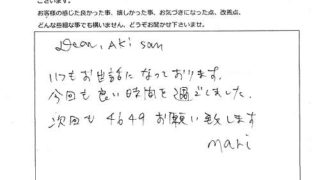 ございます。
お客様の感じた良かった事、嬉しかった事、お気づきになった点、改善点、
どんな些細な事でも構いません、どうぞお聞かせ下さいませ。
Dear, Aki san
いつもお世話になっております。
今回も良い時間を過ごしました。
次回も 4649 お願い致します
Mari